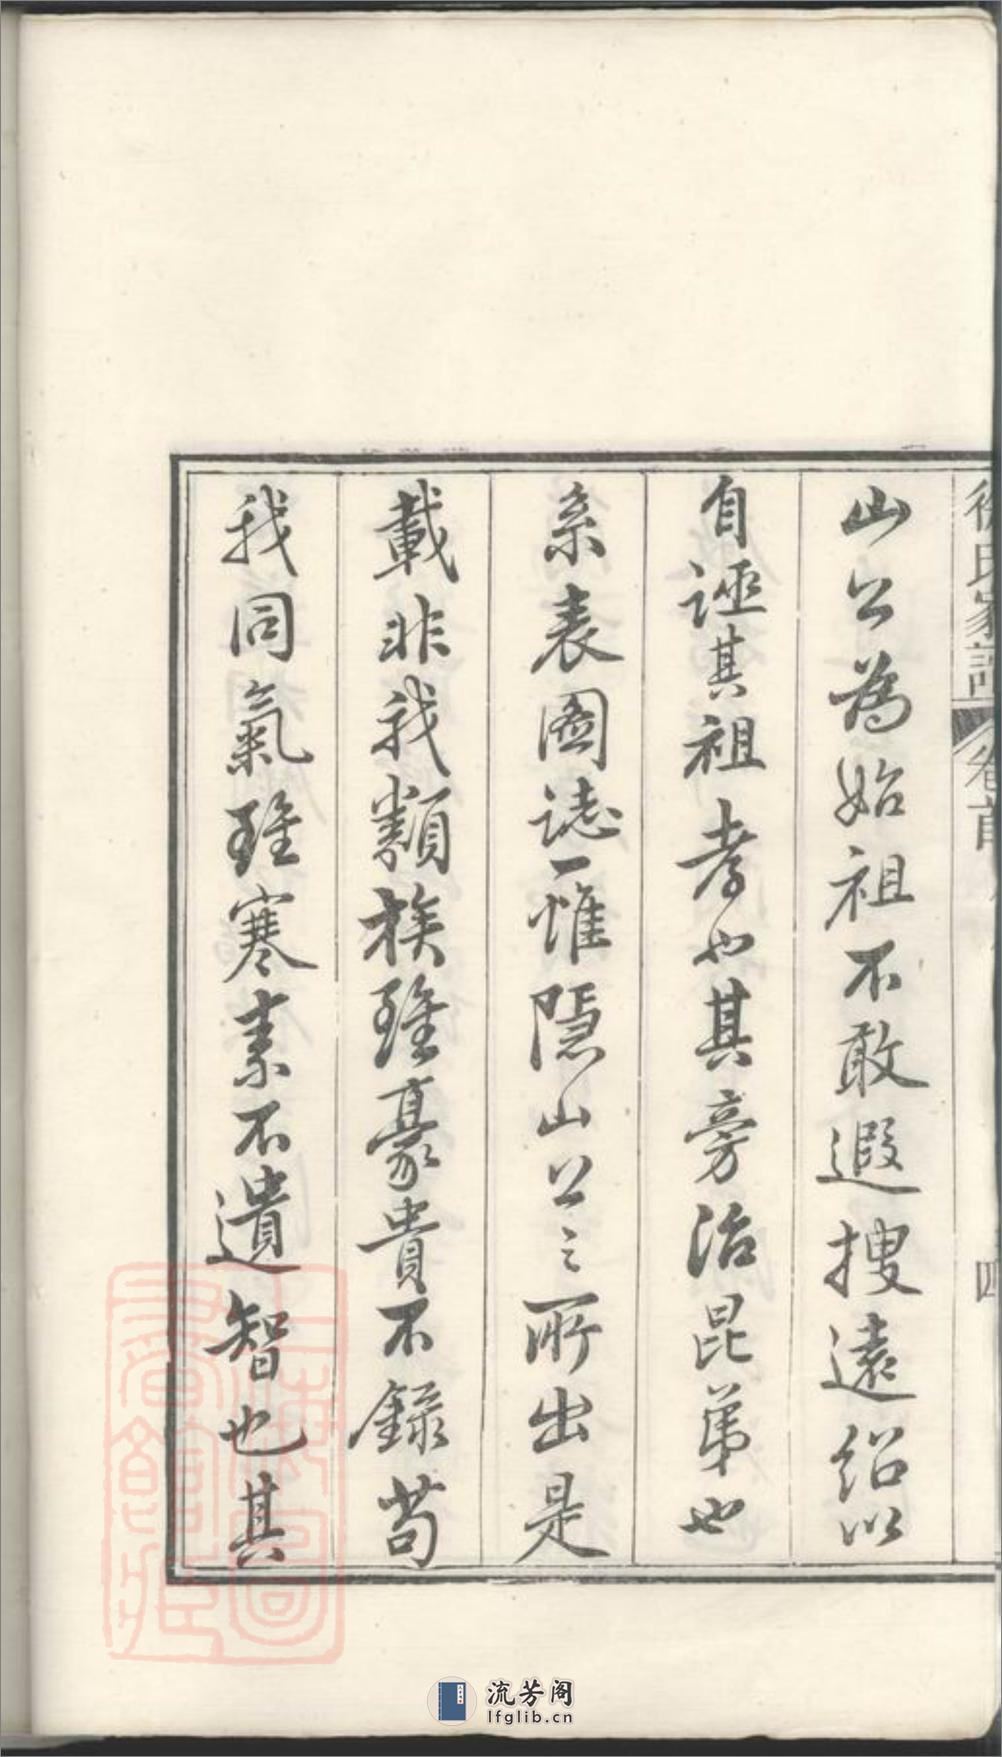 氏家
卷首
四
山公為始祖不敢遐搜遠紹以
自誣其祖孝也其旁治昆弟也
系表圖誌一惟隱山公之所出是
載非我類族雖豪貴不錄苟
我同氣雖寒素不遺智也其
上海圖書館藏
流芳阁
lfglib.cn